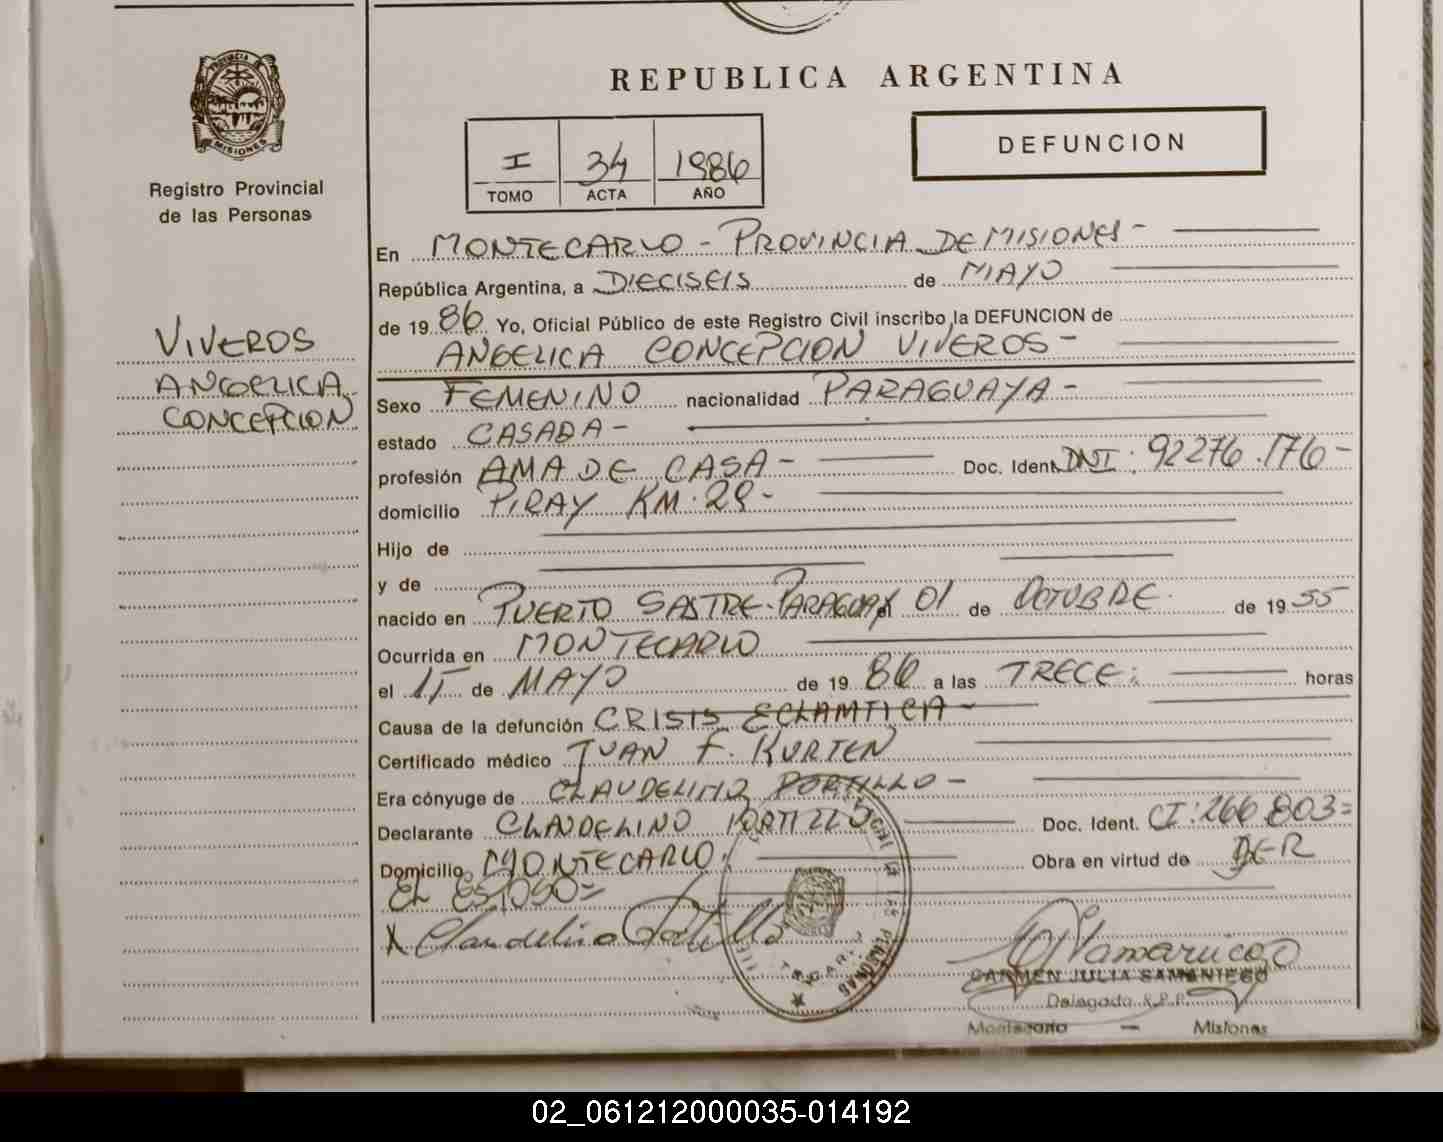 PROVINCIA DE
MISIONES
Registro Provincial
de las Personas
VIVEROS
ANGELICA
CONCEPCION
REPUBLICA ARGENTINA
I 34 1986
TOMO ACTA AÑO
DEFUNCION
En MONTECARLO - PROVINCIA DE MISIONES -
República Argentina, a DIECISEIS de MAYO
de 19 86 Yo, Oficial Público de este Registro Civil inscribo la DEFUNCION de
ANGELICA CONCEPCION VIVEROS -
Sexo FEMENINO nacionalidad PARAGUAYA -
estado CASADA -
profesión AMA DE CASA - Doc. Ident. DNI: 92276.176 -
domicilio PIRAY KM. 29 -
Hijo de
y de
nacido en PUERTO SASTRE - PARAGUAY el 01 de OCTUBRE de 19 55
Ocurrida en MONTECARLO
el 15 de MAYO de 19 86 a las TRECE: horas
Causa de la defunción CRISIS ECLAMTICA -
Certificado médico JUAN F. KURTEN
Era cónyuge de CLAUDELINO PORTILLO -
Declarante CLAUDELINO PORTILLO Doc. Ident. CI: 266.803=
Domicilio MONTECARLO. Obra en virtud de DER
EL ESPOSO=
X Claudelino Portillo
CARMEN JULIA SAMANIEGO
Delegada R.P.P.
Montecarlo — Misiones
02_061212000035-014192